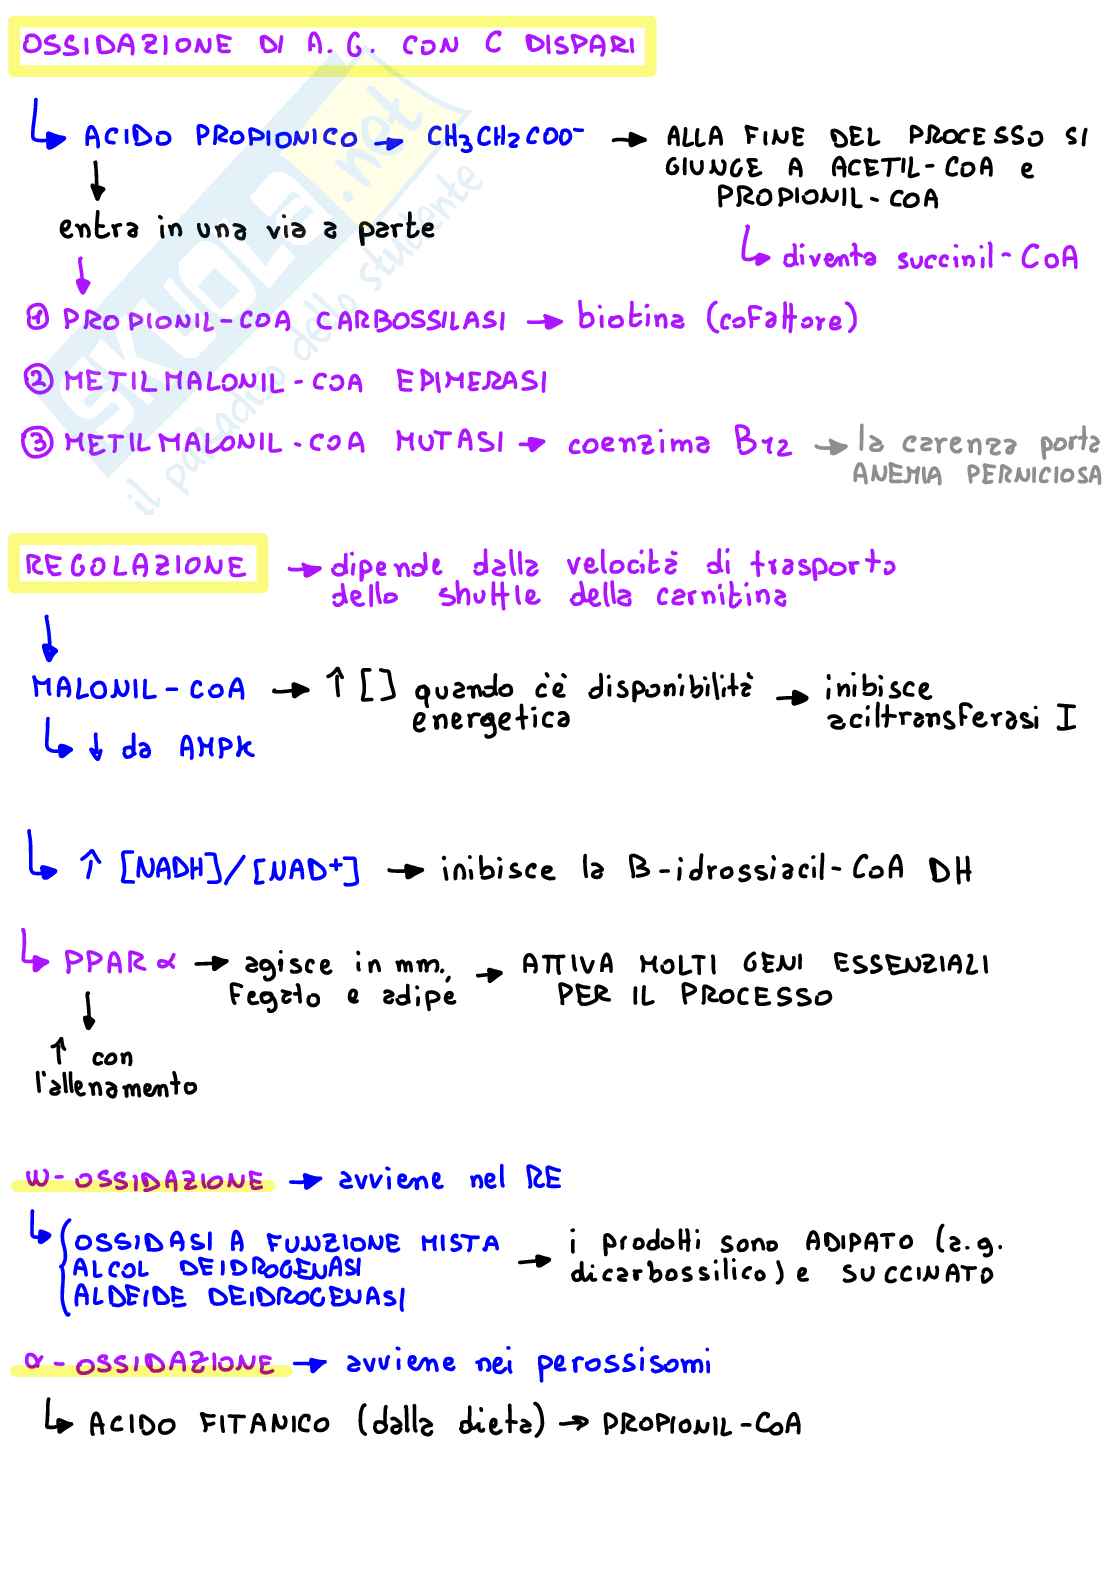 OSSIDAZIONE DI A.G. CON C DISPARI
ACIDO PROPIONICO → CH3CH2COO⁻ → ALLA FINE DEL PROCESSO SI
GIUNGE A ACETIL-COA e
PROPIONIL-COA
entra in una via a parte
diventa succinil-CoA
① PROPIONIL-COA CARBOSSILASI → biotina (coFattore)
② METILMALONIL-COA EPIMERASI
③ METILMALONIL-COA MUTASI → coenzima B12 → la carenza porta
ANEMIA PERNICIOSA
SKUOLA.net
il paradiso dello studente
REGOLAZIONE → dipende dalla velocità di trasporto
dello shuttle della carnitina
MALONIL-COA → ↑ [] quando c'è disponibilità → inibisce
energetica aciltransFerasi I
↓ da AMPK
↑ [NADH]/[NAD+] → inibisce la B-idrossiacil-CoA DH
PPAR α → agisce in mm, → ATTIVA MOLTI GENI ESSENZIALI
Fegato e adipe PER IL PROCESSO
↑ con
l'allenamento
W-OSSIDAZIONE → avviene nel RE
OSSIDASI A FUNZIONE MISTA → i prodotti sono ADIPATO (a.g.
ALCOL DEIDROGENASI dicarbossilico) e SUCCINATO
ALDEIDE DEIDROGENASI
α-OSSIDAZIONE → avviene nei perossisomi
ACIDO FITANICO (dalla dieta) → PROPIONIL-CoA